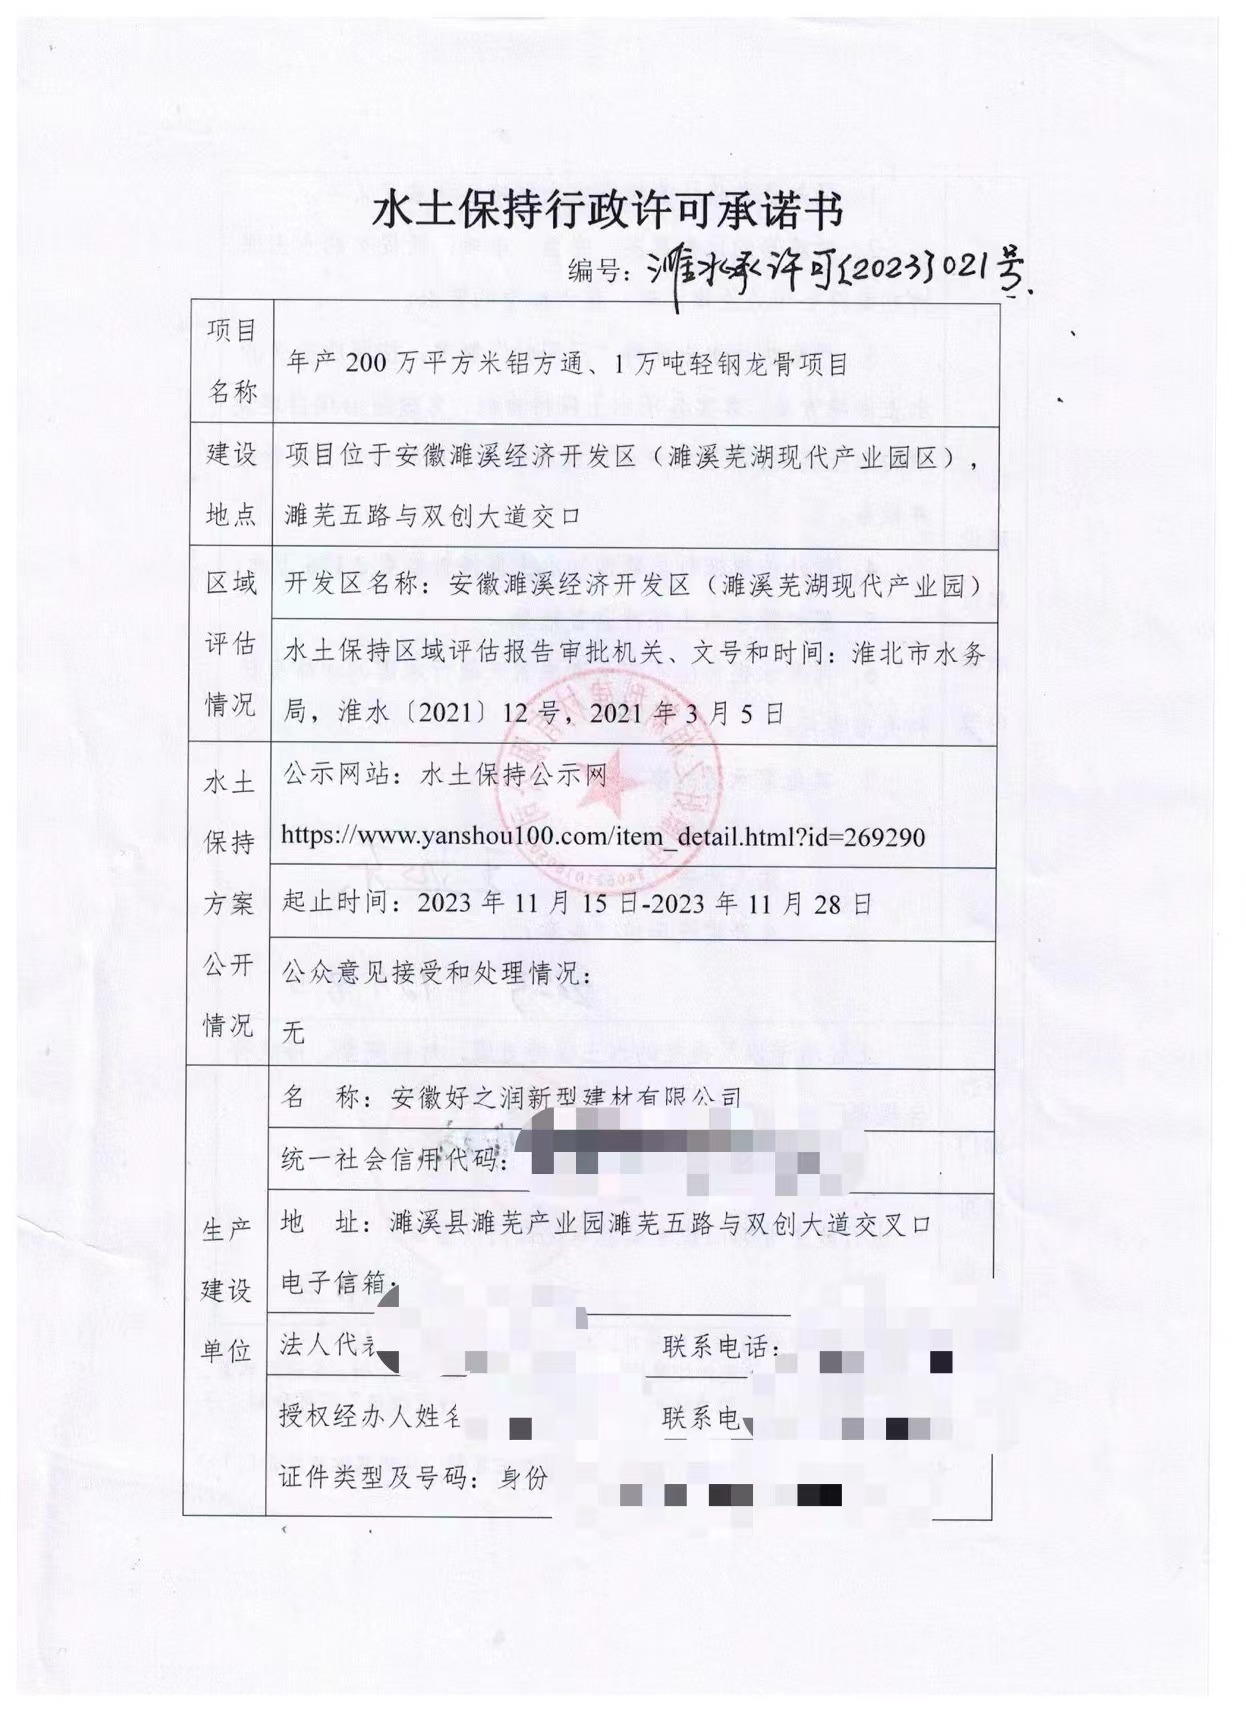 水土保持行政许可承诺书
编号：濉水承许可〔2023〕021号
项目
名称
年产 200 万平方米铝方通、1 万吨轻钢龙骨项目
建设
地点
项目位于安徽濉溪经济开发区（濉溪芜湖现代产业园区），
濉芜五路与双创大道交口
区域
评估
情况
开发区名称：安徽濉溪经济开发区（濉溪芜湖现代产业园）
水土保持区域评估报告审批机关、文号和时间：淮北市水务
局，淮水〔2021〕12 号，2021 年 3 月 5 日
水土
保持
方案
公开
情况
公示网站：水土保持公示网
https://www.yanshou100.com/item_detail.html?id=269290
起止时间：2023 年 11 月 15 日-2023 年 11 月 28 日
公众意见接受和处理情况：
无
生产
建设
单位
名　称：安徽好之润新型建材有限公司
统一社会信用代码：
地　址：濉溪县濉芜产业园濉芜五路与双创大道交叉口
电子信箱：
法人代表
联系电话：
授权经办人姓名
联系电
证件类型及号码：身份